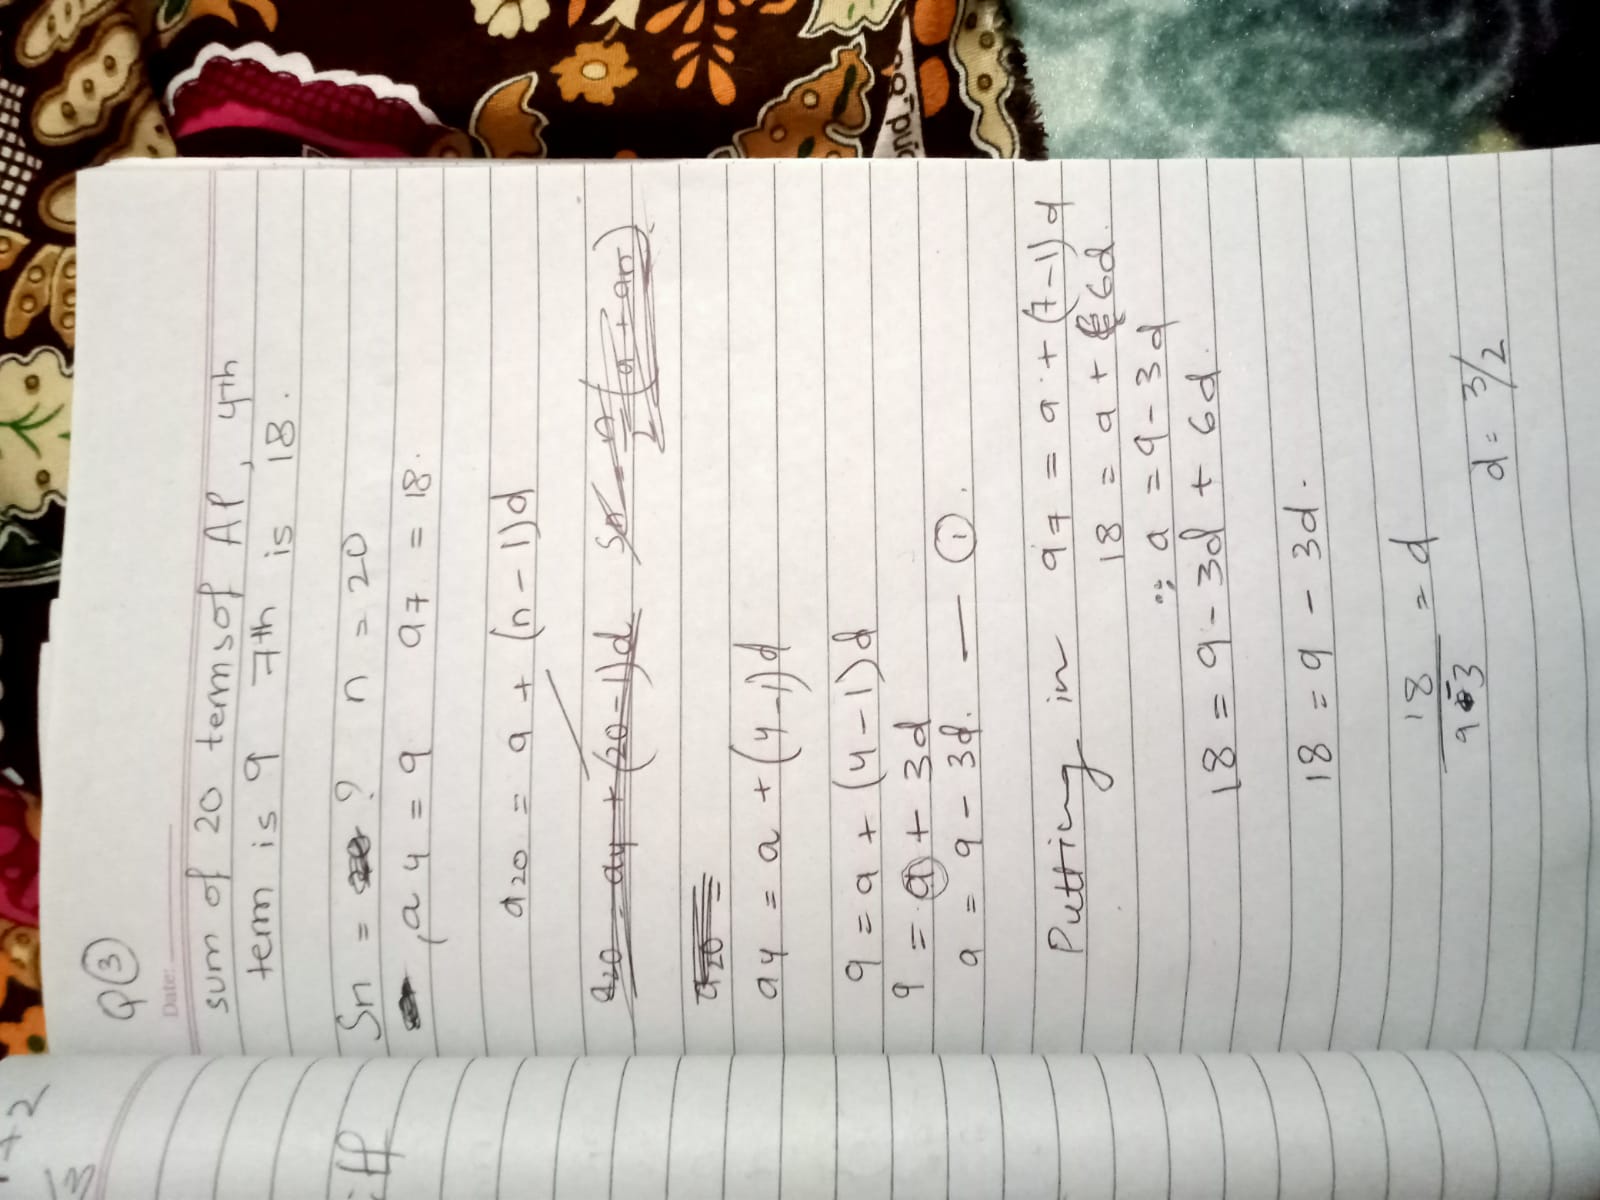 +2
Q ③
Date:
sum of 20 terms of AP, 4th
term is 9 7th is 18.
iff
Sn = ? n = 20
, a4 = 9 a7 = 18.
a20 = a + (n-1)d
a20 = a4 + (20-1)d Sn = n/2 (a + an)
a20 =
a4 = a + (4-1)d
9 = a + (4-1)d
9 = a + 3d
a = 9 - 3d. — ①.
Putting in a7 = a + (7-1)d
18 = a + 6d.
∵ a = 9 - 3d
18 = 9 - 3d + 6d.
18 = 9 - 3d.
18/9-3 = d
d = 3/2
ond_